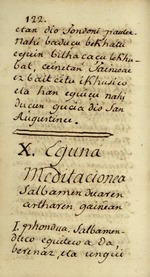 122.
etan dio Jondoni
nahi baducu bekhatu
eguin bilhacaçu lekhu
bat, ceinetan Jaincoac
ez baitçitu ikhusico
eta han eguçu nahi
ducun guçia dio San
Augustinec.
X. Eguna
Meditacionea
Salbamenduaren
artharen gainean
I. phondua. Salbamen-
duco eguitecoa da,
berenaz, eta cinqui